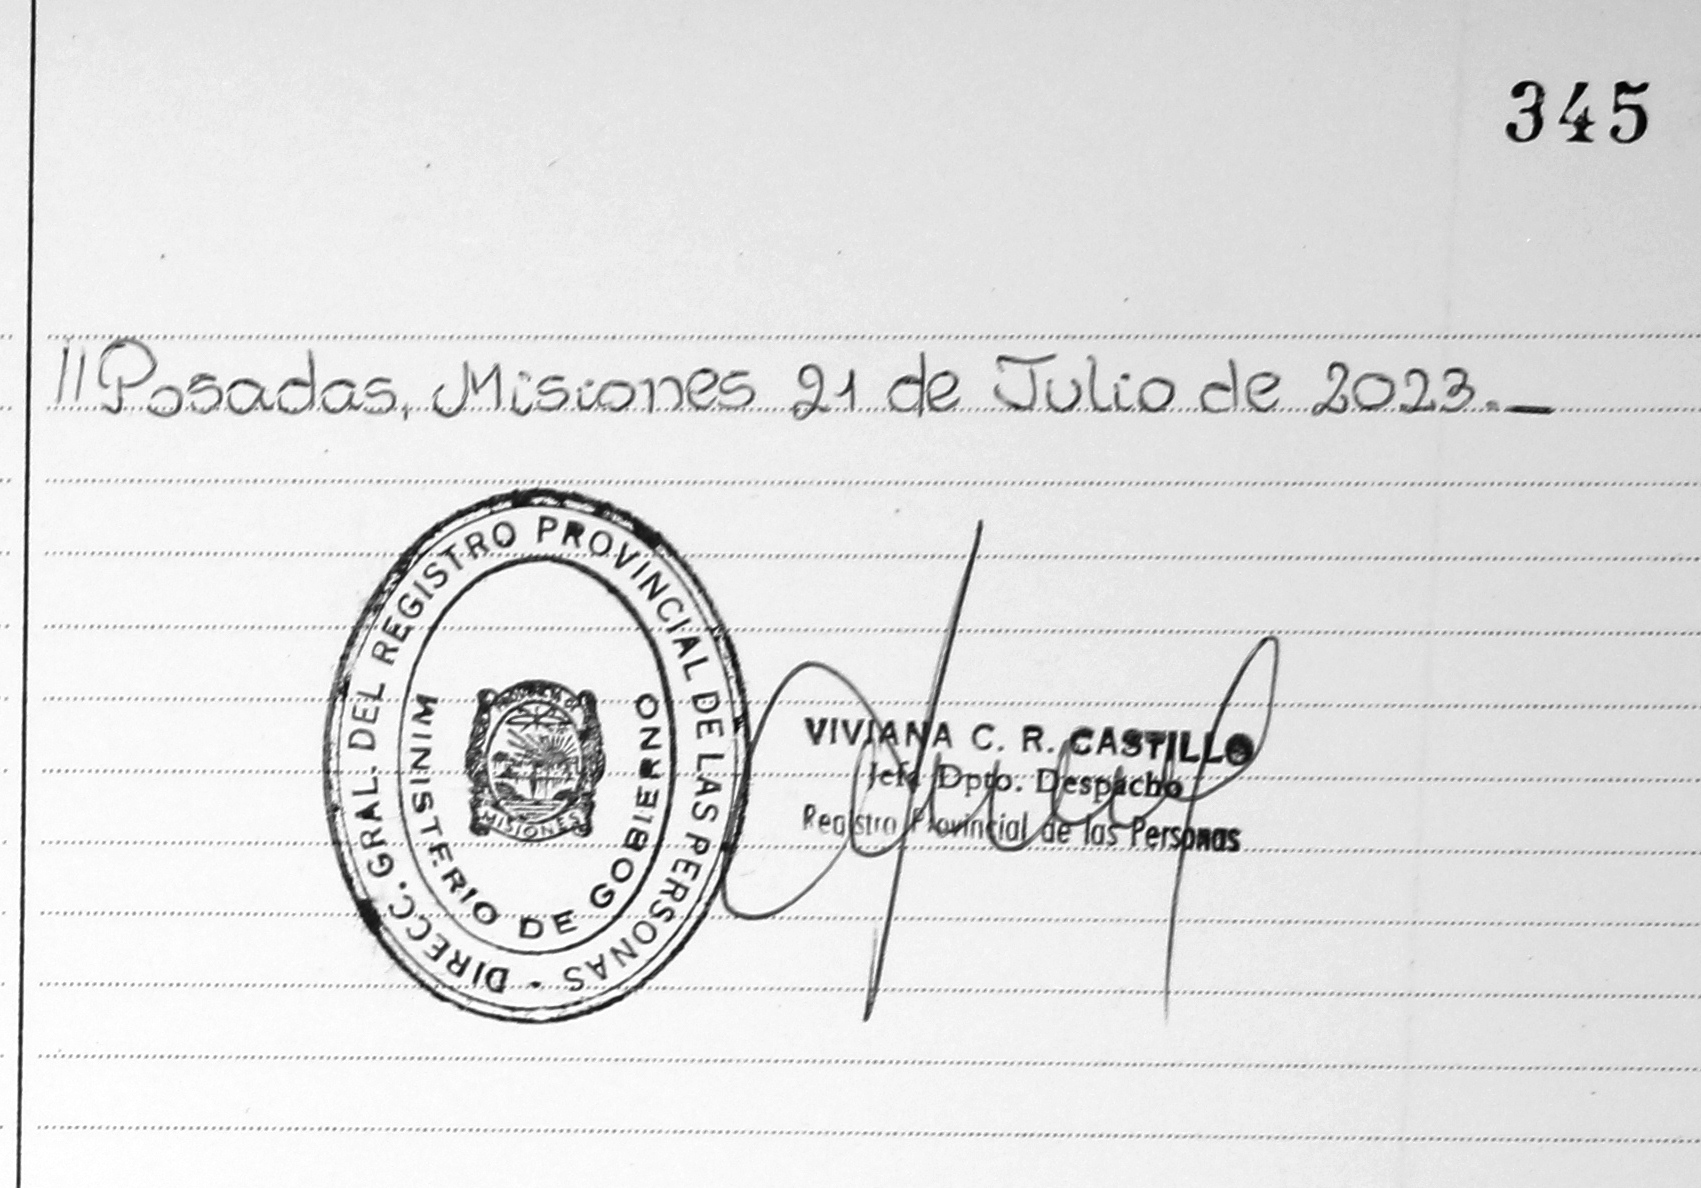 345
//Posadas, Misiones 21 de Julio de 2023.—
DIRECC. GRAL. DEL REGISTRO PROVINCIAL DE LAS PERSONAS -
MINISTERIO DE GOBIERNO
PROVINCIA DE
MISIONES
VIVIANA C. R. CASTILLO
Jefe Dpto. Despacho
Registro Provincial de las Personas